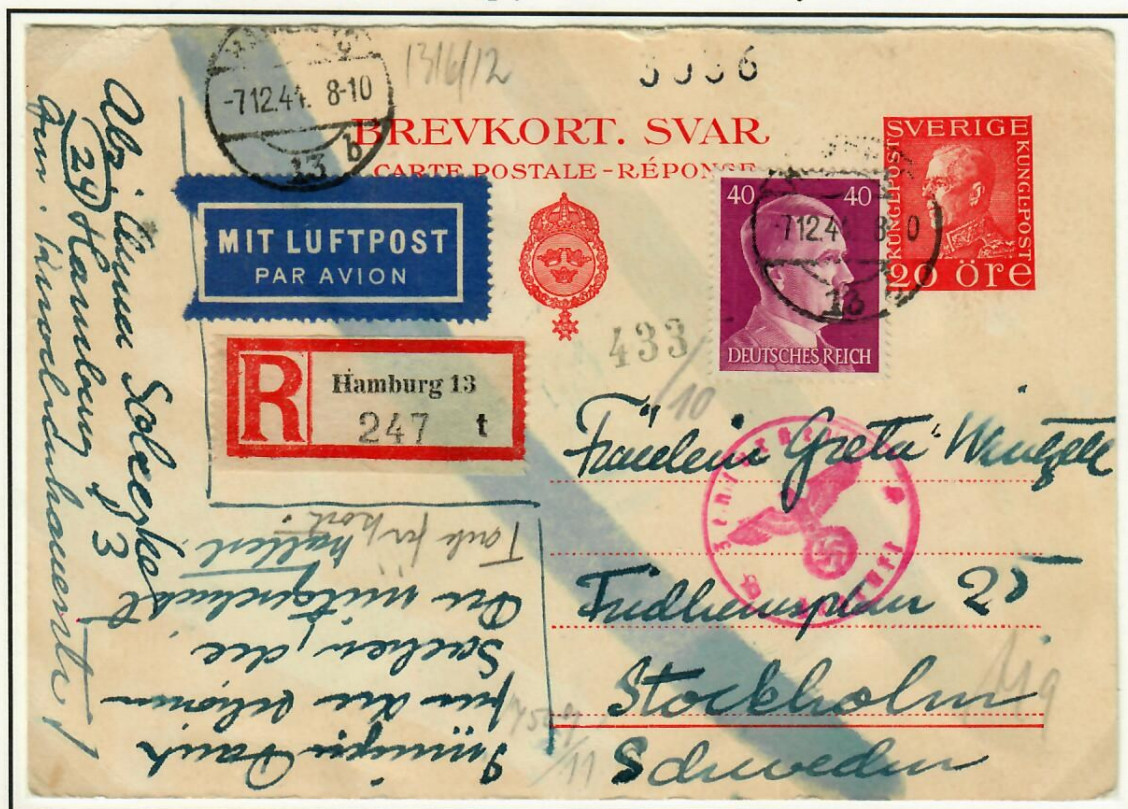 -7.12.44. 8-10
13 b
1316/12
BREVKORT. SVAR
CARTE POSTALE-RÉPONSE
SVERIGE
KUNGL:POST
KUNGL:POST
20 öre
40 40
DEUTSCHES REICH
-7.12.4 8-10
13
MIT LUFTPOST
PAR AVION
R
Hamburg 13
247 t
433
/10
Fräulein Greta
Fridhemsplan 25
Stockholm
Schweden
Abs:
(24) Hamburg 13
Inniger Dank
für die
Sachen, die
Du mitgeschickt
hattest.
Tack för kort.
/11